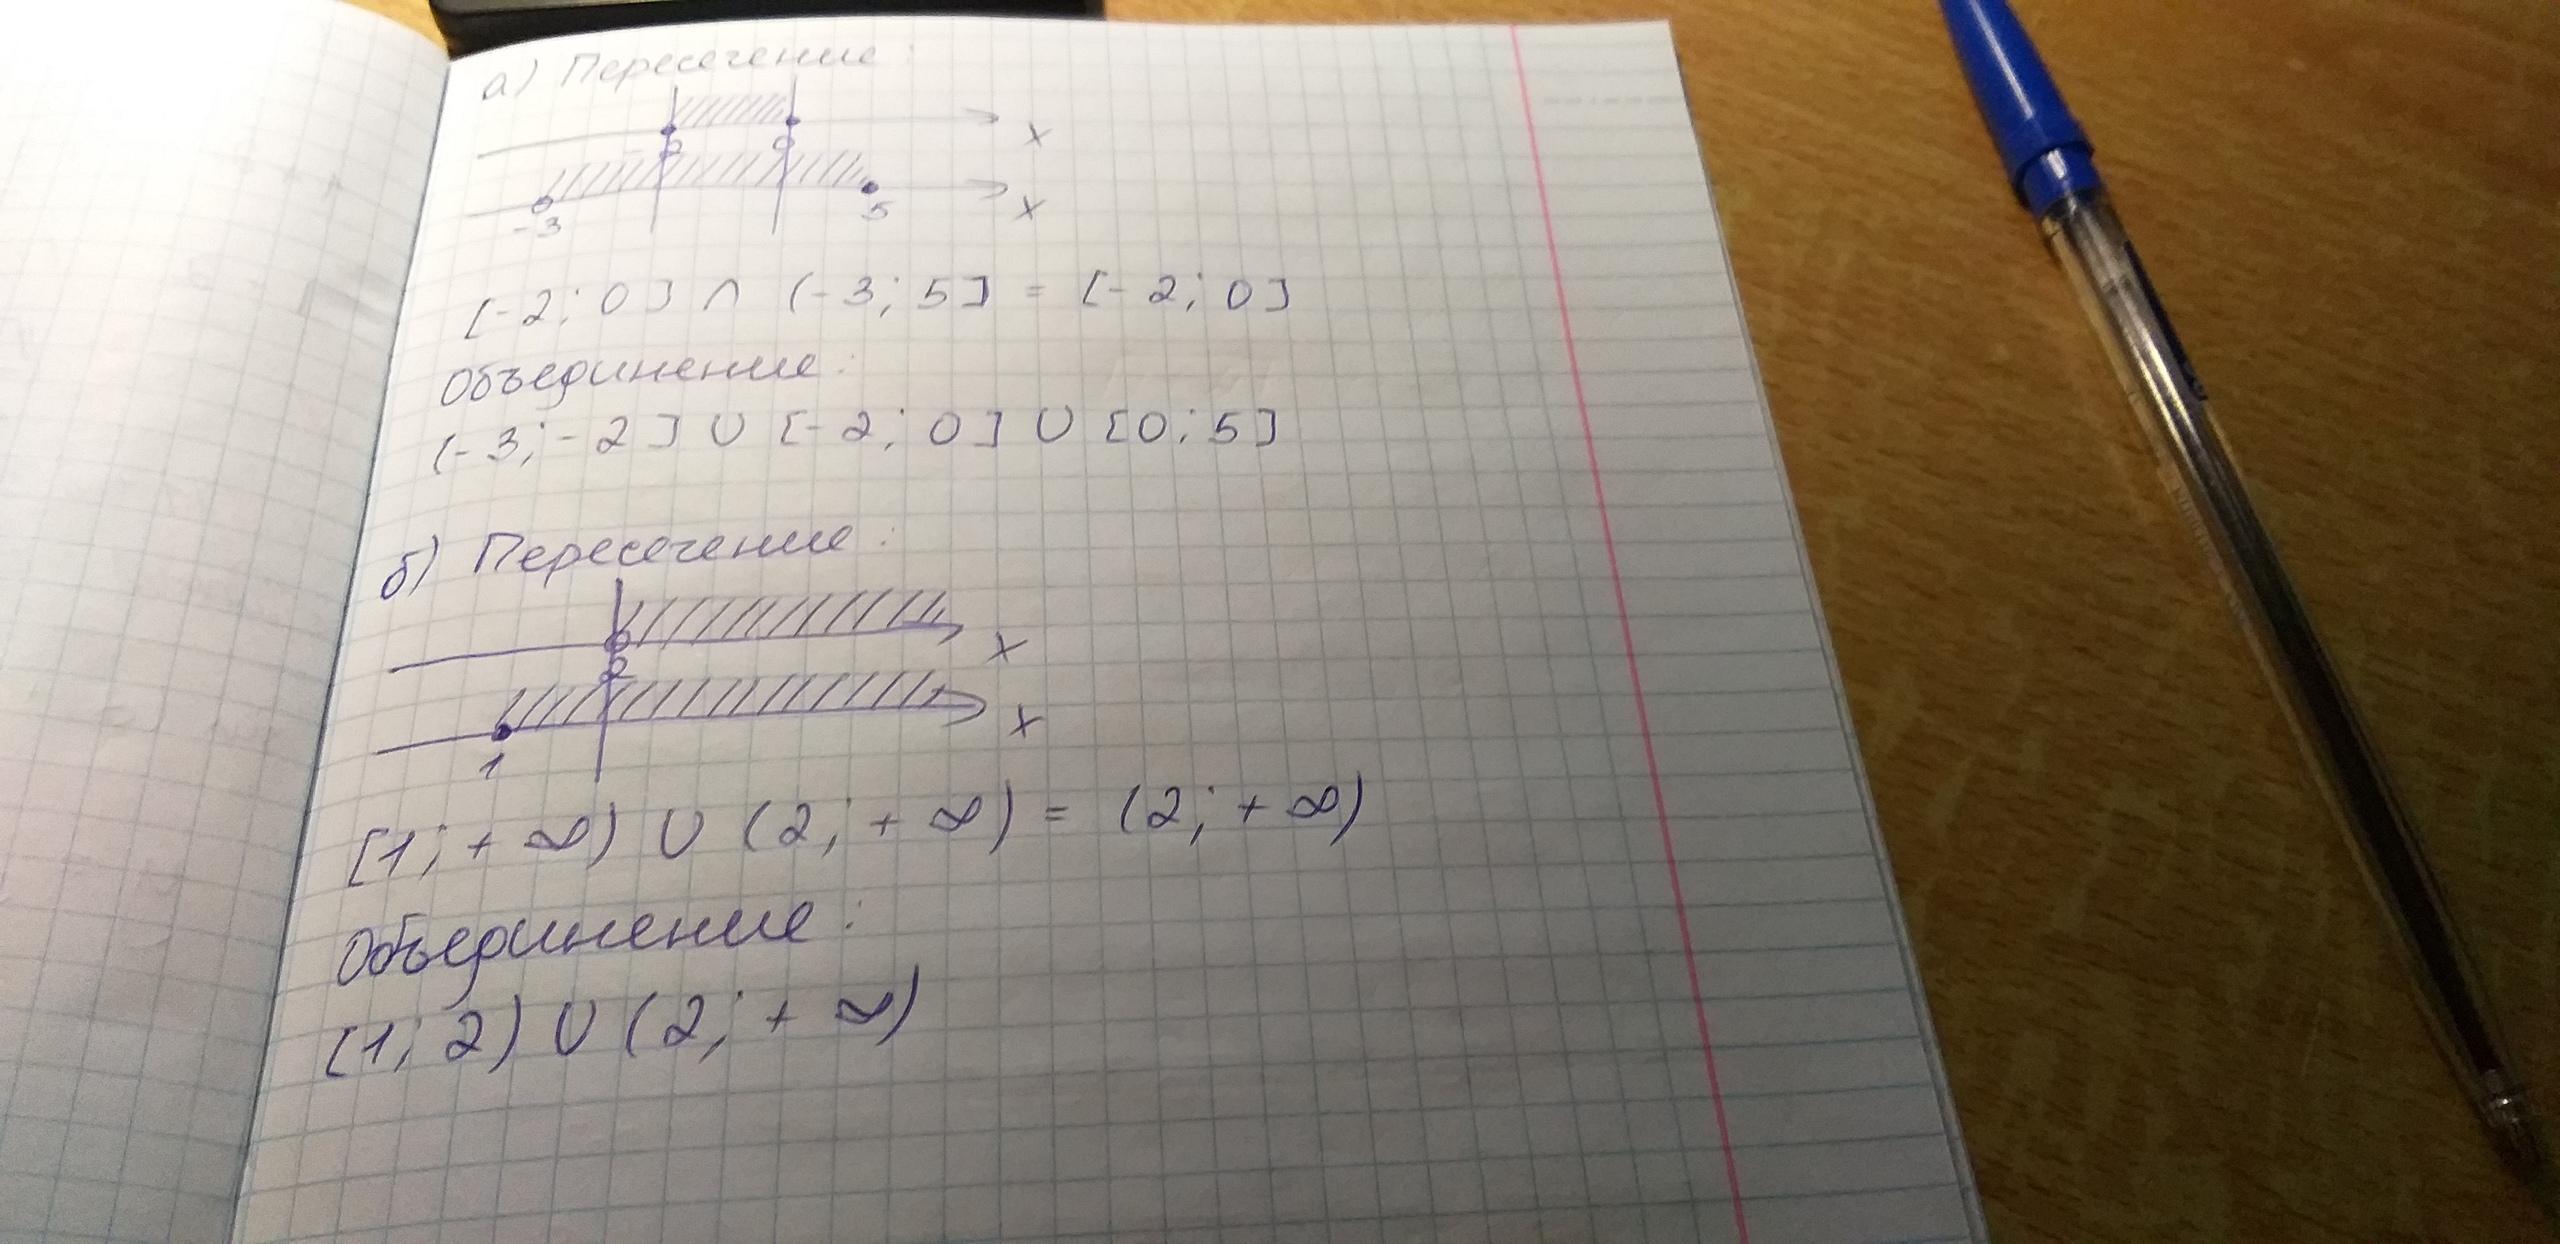 а) Пересечение:
-2 0 x
-3 5 x
[-2; 0] ∩ (-3; 5] = [-2; 0]
Объединение:
(-3; -2] ∪ [-2; 0] ∪ [0; 5]
б) Пересечение:
2 x
1 x
[1; + ∞) ∪ (2; + ∞) = (2; + ∞)
Объединение:
[1; 2) ∪ (2; + ∞)